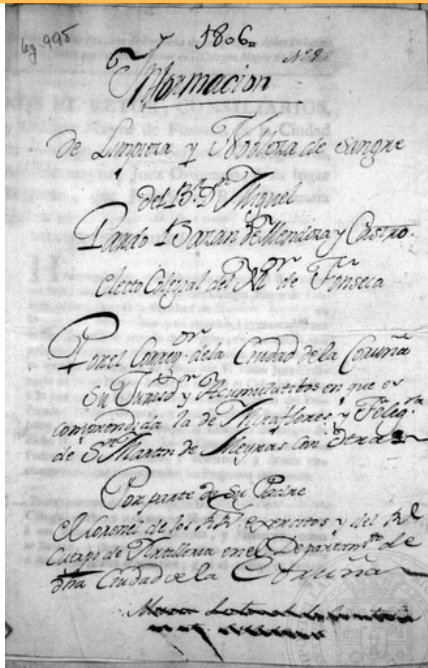 leg 995
1806,,
Nº 8
Ynformacion
De Limpieza y Nobleza de sangre
del B.r D.n Miguel
Pardo Bazan de Mendoza y Castro.
Electo Colegial del M.or de Fonseca
Por el Correg.or dela Ciudad de la Coruña
Su Jurisd.n y Acumulativos en que es
comprendida la de Miraflores, y Felig.sia
de S.n Martin de Meyras con otras
Por parte de Su Padre
el Coronel de los R.s Exercitos y del R.l
Cuerpo de Artilleria en el Departam.to de
dha Ciudad de la Coruña